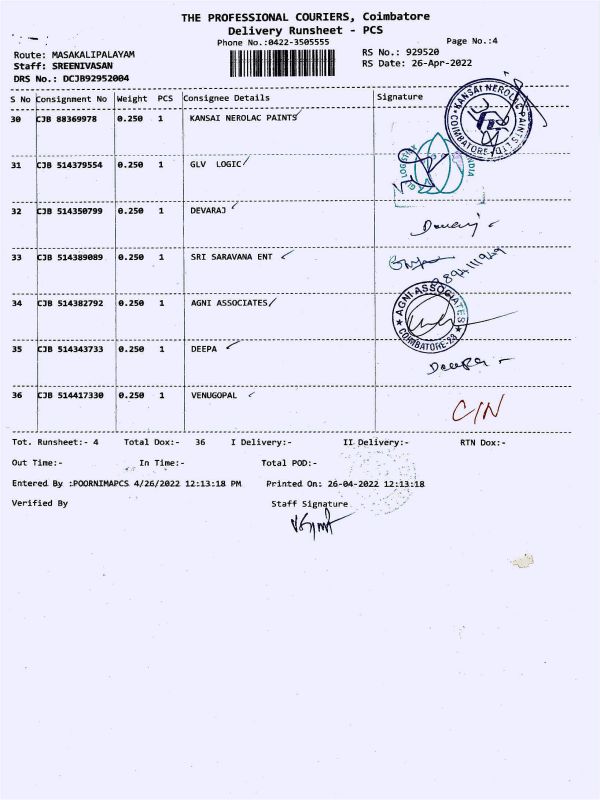 THE PROFESSIONAL COURIERS, Coimbatore
Delivery Runsheet - PCS
Phone No.:0422-3505555
Page No.:4
Route: MASAKALIPALAYAM
RS No.: 929520
Staff: SREENIVASAN
RS Date: 26-Apr-2022
DRS No.: DCJB92952004
S No Consignment No Weight PCS Consignee Details Signature
30 CJB 88369978 0.250 1 KANSAI NEROLAC PAINTS
KANSAI NEROLAC PAINTS LTD. COIMBATORE
31 CJB 514379554 0.250 1 GLV LOGIC
32 CJB 514350799 0.250 1 DEVARAJ
33 CJB 514389089 0.250 1 SRI SARAVANA ENT
34 CJB 514382792 0.250 1 AGNI ASSOCIATES
AGNI ASSOCIATES COIMBATORE-23
35 CJB 514343733 0.250 1 DEEPA
Deepa
36 CJB 514417330 0.250 1 VENUGOPAL
C/N
Tot. Runsheet:- 4 Total Dox:- 36 I Delivery:- II Delivery:- RTN Dox:-
Out Time:- In Time:- Total POD:-
Entered By :POORNIMAPCS 4/26/2022 12:13:18 PM Printed On: 26-04-2022 12:13:18
Verified By Staff Signature